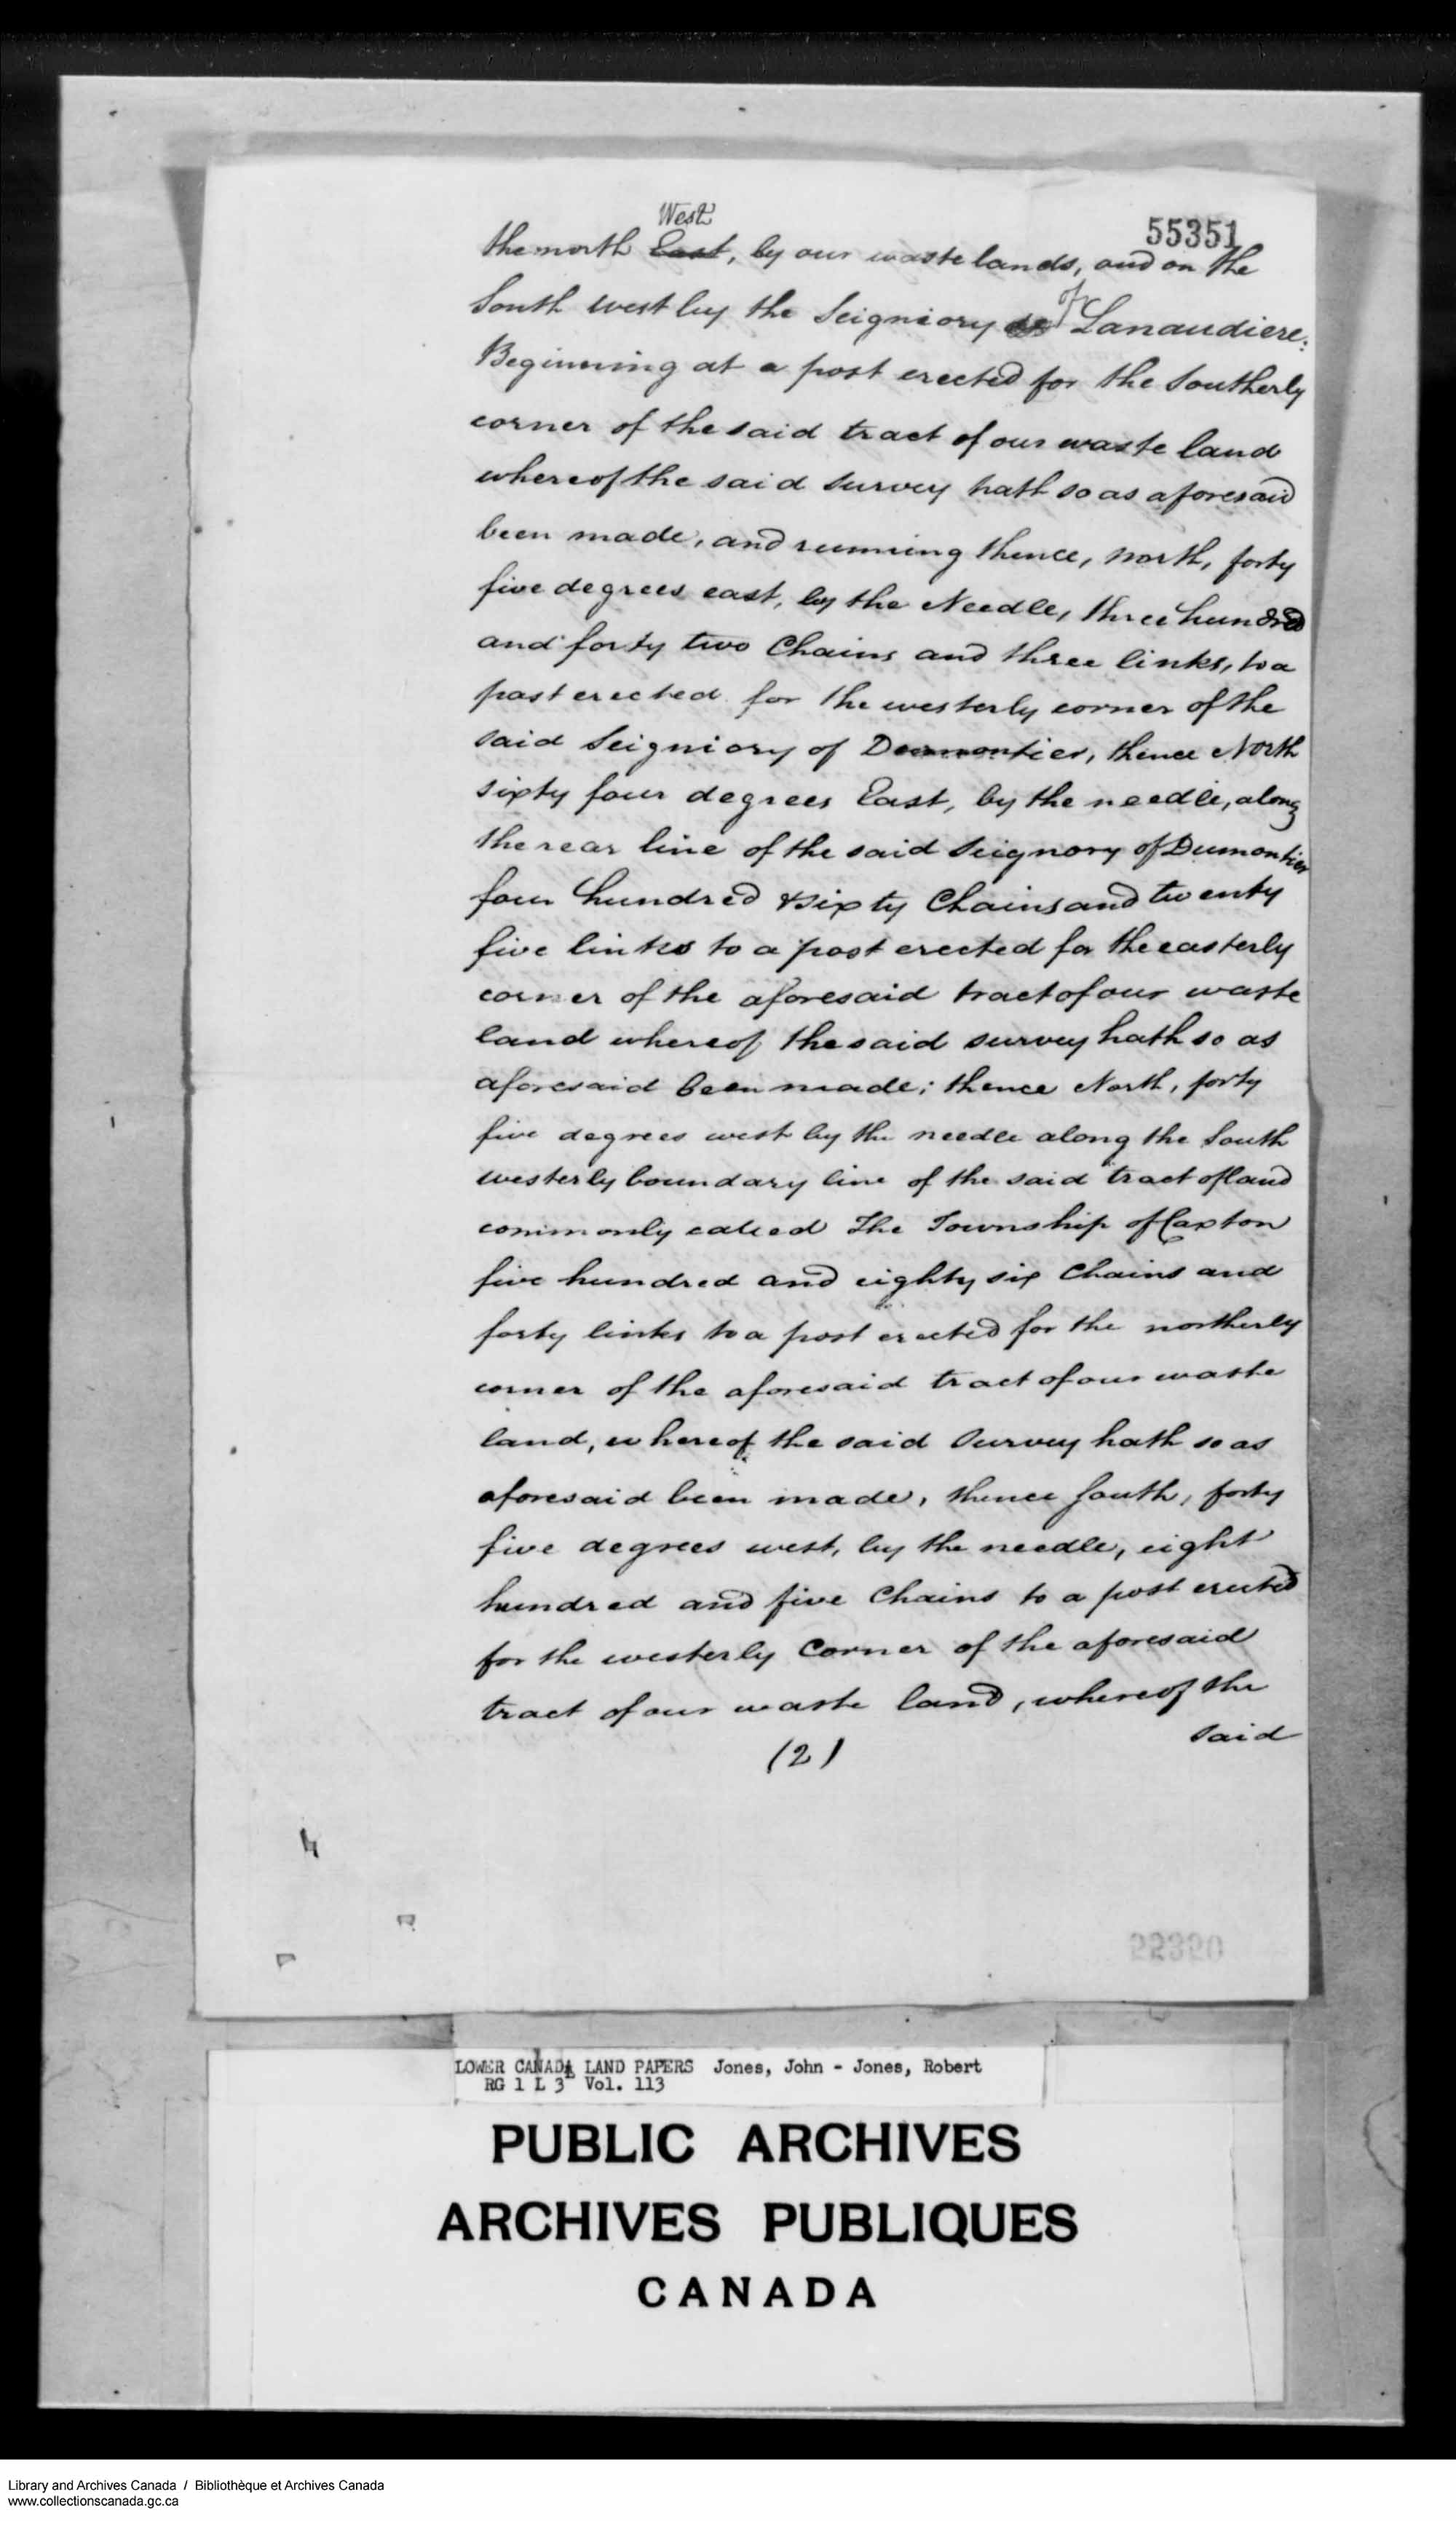 West
55351
the north East, by our waste lands, and on the
South west by the Seigniory de of Lanaudiere:
Beginning at a post erected for the Southerly
corner of the said tract of our waste land
whereof the said survey hath so as aforesaid
been made, and running thence, north, forty
five degrees east, by the Needle, three hundred
and forty two Chains and three links, to a
post erected for the westerly corner of the
said Seigniory of Dumontier, thence North
sixty four degrees East, by the needle, along
the rear line of the said Seignory of Dumontier
four hundred & sixty Chains and twenty
five links to a post erected for the easterly
corner of the aforesaid tract of our waste
land whereof the said survey hath so as
aforesaid been made; thence North, forty
five degrees west by the needle along the South
westerly boundary line of the said tract of land
commonly called The Township of Caxton
five hundred and eighty six Chains and
forty links to a post erected for the northerly
corner of the aforesaid tract of our waste
land, whereof the said Survey hath so as
aforesaid been made, thence South, forty
five degrees west, by the needle, eight
hundred and five Chains to a post erected
for the westerly Corner of the aforesaid
tract of our waste land, whereof the
said
(2)
22320
LOWER CANADA LAND PAPERS Jones, John - Jones, Robert
RG 1 L 3 Vol. 113
PUBLIC ARCHIVES
ARCHIVES PUBLIQUES
CANADA
Library and Archives Canada / Bibliothèque et Archives Canada
www.collectionscanada.gc.ca